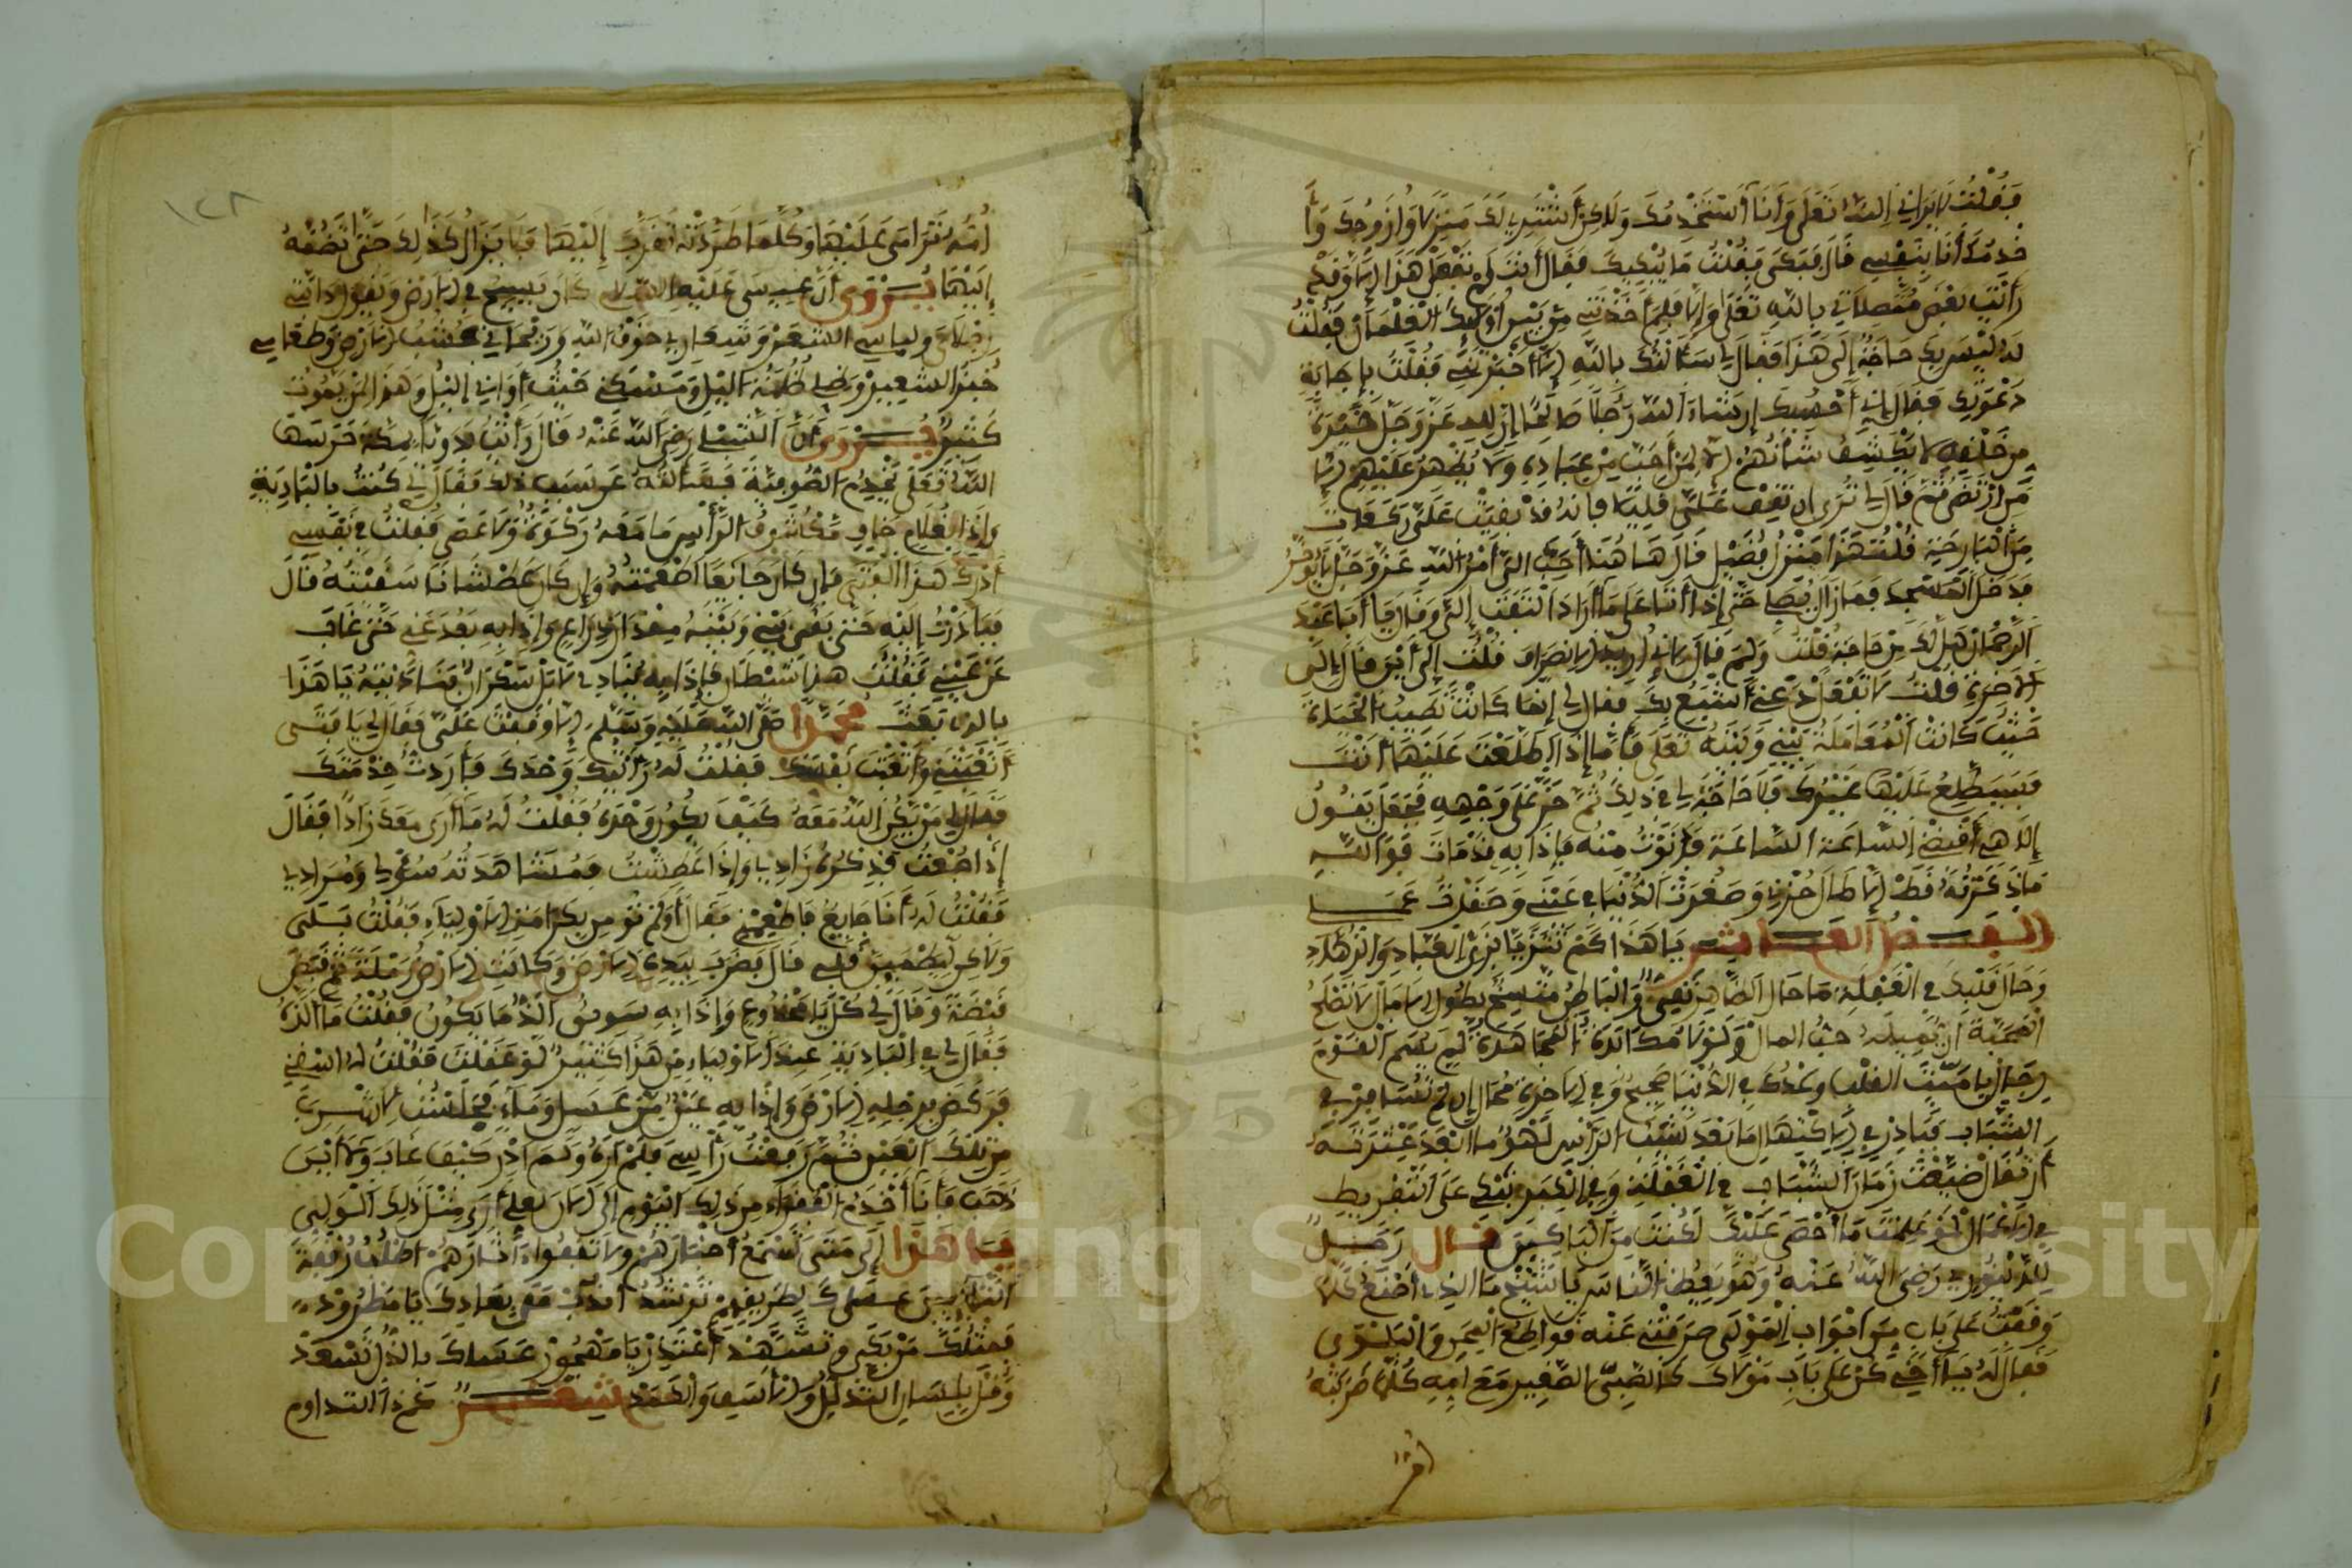 فقلت لا يراني الله تعلى وأنا أستخدمك ولكن أشتري لك منزلا وأزوجك و
خدمك أنا بنفسي قال فبكى فقلت ما يبكيك فقال أنت لم تفعل هذا إلا وقد
رأيت بعض متصلاتي بالله تعلى وإلا فلم أخذتني من بين أولئك الغلمان فقلت
له ليس بك حاجة إلى هذا فقال لي سألتك بالله إلا أخبرتني فقلت بإجابة
دعوتك فقال إني أحسبك إن شاء الله رجلا صالحا إن لله عز وجل خيرة
من خلقه لا يكشف شأنهم إلا لمن أحب من عباده ولا يظهر عليهم إلا
من ارتضى ثم قال لي ترى أن تقف علي قليلا فإنه قد بقيت علي ركعات
من البارحة قلت هذا منزل فضيل قال ها هنا أحب إلي أمر الله عز وجل لا يؤخر
فدخل المسجد فما زال يصلي حتى إذا أتا على ما أراد التفت إلي وقال يا أبا عبد
الرحمان هل لك من حاجة قلت ولم قال لأني أريد الانصراف قلت إلى أين قال إلى
الآخرة قلت لا تفعل دعني أستمتع بك فقال لي إنما كانت تطيب الحياة
حيث كانت المعاملة بيني وبينه تعلى فأما إذا اطلعت عليها أنت
فسيطلع عليها غيرك فلا حاجة لي في ذلك ثم خر على وجهه فجعل يقول
إلاهي اقبضني الساعة الساعة فدنوت منه فإذا به قد مات فوالله
ما ذكرته قط إلا طال حزني وصغرت الدنيا في عيني وحقرت عملي
الفصل العاشر يا هذا كم تتزيا بزي العباد والزهاد
وحال قلبك في الغفلة ما حال الظاهر نقي والباطن متسخ بطول الأمال لا تصلح
المحبة لمن يميله حب المال ولولا مكابدة المجاهدة لم يسم القوم
رجال يا ميت القلب وعدك في الدنيا صحيح وفي الآخرة محال إن لم تبادر في
الشباب فبادر في الاكتهال ما بعد شيب الرأس لهو ما أبعد عثرته
أن تقال ضيعت زمان الشباب في الغفلة وفي الكبر تبكي على التفريط
في الأعمال لو علمت ما أحصي عليك لكنت من الباكين قال رجل
للدينوري رضي الله عنه وهو يعظ الناس يا شيخ ما الذي أصنع كلما
وقفت على باب من أبواب المولى صرفتني عنه قواطع المحن والبلوى
فقال له يا أخي كن على باب مولاك كالصبي الصغير مع أمه كلما ضربته
أمه
أمه يترامى عليها وكلما طردته تقرب إليها فلا يزال كذلك حتى تضمه
إليها يروى أن عيسى عليه السلام كان يسيح في الأرض ويقول دابتي
رجلاي ولباسي الشعر وشعاري خوف الله وريحاني عشب الأرض وطعامي
خبز الشعير وظلي ظلمة الليل ومسكني حيث أواني الليل وهذا لمن يموت
كثير يروى أن الشبلي رضي الله عنه قال رأيت بدويا بمكة حرسها
الله تعلى يخدم الصوفية فسألته عن سبب ذلك فقال لي كنت بالبادية
وإذا بغلام حاف مكشوف الرأس ما معه ركوة ولا عصى فقلت في نفسي
أدرك هذا الفتى فإن كان جايعا أطعمته وإن كان عطشانا سقيته قال
فبادرت إليه حتى بقى بيني وبينه مقدار ذراع وإذا به بعد عني حتى غاب
عن عيني فقلت هذا شيطان فإذا به ينادي لا بل سكران فناديته يا هذا
بالذي بعث محمدا صلى الله عليه وسلم إلا وقفت علي فقال لي يا فتى
أتعبتني وأتعبت نفسك فقلت له رأيتك وحدك فأردت خدمتك
فقال لي من يكن الله معه كيف يكون وحده فقلت له ما أرى معك زادا فقال
إذا جعت فذكره زادي وإذا عطشت فمشاهدته سؤلي ومرادي
فقلت له أنا جايع فاطعمني فقال أولم تؤمن بكرامات الأولياء فقلت بلى
ولاكن ليطمين قلبي قال فضرب بيده الأرض وكانت الأرض رملة ثم قبض
قبضة وقال لي كل يا مخدوع وإذا به سويق ألذ ما يكون فقلت ما ألذه
فقال لي في البادية عند الأولياء من هذا كثير لو عقلت فقلت له اسقني
فركض برجله الأرض وإذا به عين من عسل وماء فجلست لأشرب
من تلك العين ثم رفعت رأسي فلم أره ولم أدر كيف غاب ولا أين
ذهب فأنا أخدم الفقراء من ذلك اليوم إلى الآن لعلي أرى مثل ذلك الولي
يا هذا إلى متى تسمع أخبارهم ولا تقفوا آثارهم اطلب رفقة
التائبين عساك لطريقهم ترشد اندب على بعادك يا مطرود
فمثلك من بكى وتسهد اعتذر يا مهجور عساك بالذل تسعد
وقل بلسان التذلل والأسف والكمد شعر غرد